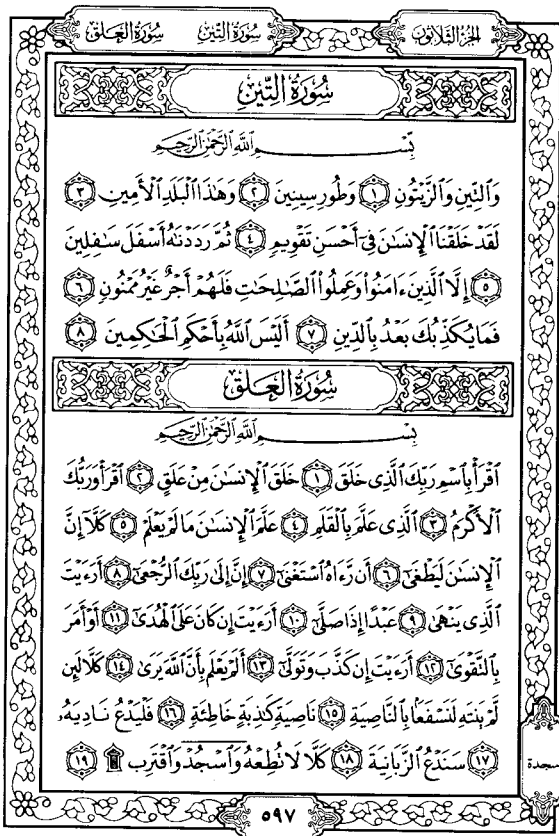 الجزء الثلاثون سورة التين سورة العلق
سُورَةُ التِّينِ
بِسْمِ اللَّهِ الرَّحْمَٰنِ الرَّحِيمِ
وَالتِّينِ وَالزَّيْتُونِ ١ وَطُورِ سِينِينَ ٢ وَهَٰذَا الْبَلَدِ الْأَمِينِ ٣
لَقَدْ خَلَقْنَا الْإِنسَٰنَ فِىٓ أَحْسَنِ تَقْوِيمٍ ٤ ثُمَّ رَدَدْنَٰهُ أَسْفَلَ سَٰفِلِينَ
٥ إِلَّا الَّذِينَ ءَامَنُوا۟ وَعَمِلُوا۟ الصَّٰلِحَٰتِ فَلَهُمْ أَجْرٌ غَيْرُ مَمْنُونٍ ٦
فَمَا يُكَذِّبُكَ بَعْدُ بِالدِّينِ ٧ أَلَيْسَ اللَّهُ بِأَحْكَمِ الْحَٰكِمِينَ ٨
سُورَةُ العَلَقِ
بِسْمِ اللَّهِ الرَّحْمَٰنِ الرَّحِيمِ
اقْرَأْ بِاسْمِ رَبِّكَ الَّذِى خَلَقَ ١ خَلَقَ الْإِنسَٰنَ مِنْ عَلَقٍ ٢ اقْرَأْ وَرَبُّكَ
الْأَكْرَمُ ٣ الَّذِى عَلَّمَ بِالْقَلَمِ ٤ عَلَّمَ الْإِنسَٰنَ مَا لَمْ يَعْلَمْ ٥ كَلَّآ إِنَّ
الْإِنسَٰنَ لَيَطْغَىٰٓ ٦ أَن رَّءَاهُ اسْتَغْنَىٰٓ ٧ إِنَّ إِلَىٰ رَبِّكَ الرُّجْعَىٰٓ ٨ أَرَءَيْتَ
الَّذِى يَنْهَىٰ ٩ عَبْدًا إِذَا صَلَّىٰٓ ١٠ أَرَءَيْتَ إِن كَانَ عَلَى الْهُدَىٰٓ ١١ أَوْ أَمَرَ
بِالتَّقْوَىٰٓ ١٢ أَرَءَيْتَ إِن كَذَّبَ وَتَوَلَّىٰٓ ١٣ أَلَمْ يَعْلَم بِأَنَّ اللَّهَ يَرَىٰ ١٤ كَلَّا لَئِن
لَّمْ يَنتَهِ لَنَسْفَعًۢا بِالنَّاصِيَةِ ١٥ نَاصِيَةٍ كَٰذِبَةٍ خَاطِئَةٍ ١٦ فَلْيَدْعُ نَادِيَهُۥ
١٧ سَنَدْعُ الزَّبَانِيَةَ ١٨ كَلَّا لَا تُطِعْهُ وَاسْجُدْ وَاقْتَرِب ۩ ١٩
سجدة
٥٩٧